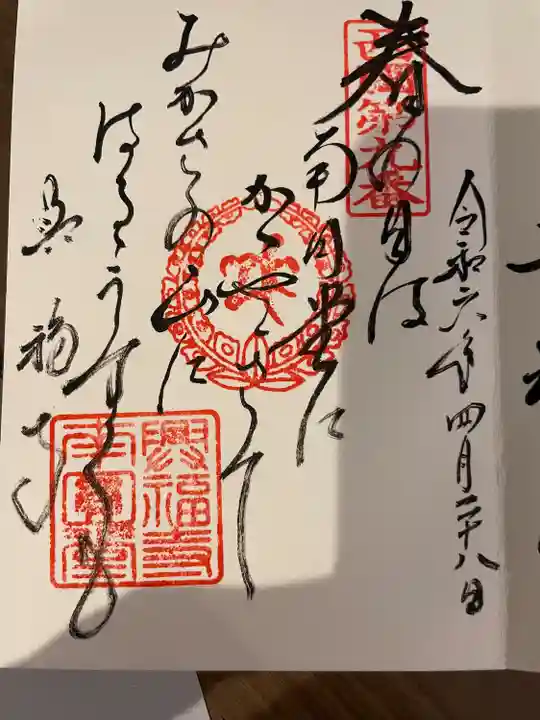 令和六年四月二十八日
西國第九番
春の日は
南円堂に
かゝやきて
みかさの山に
はるゝうすくも
興福寺
興福寺
南圓堂